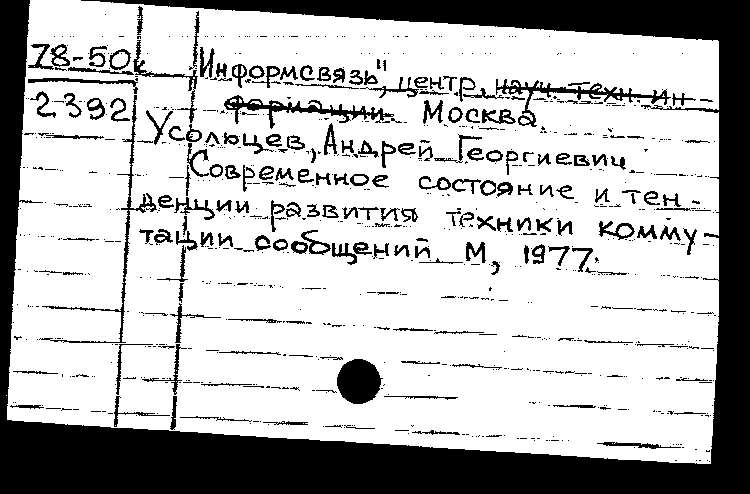 78-50к
2392
"Информсвязь", центр. науч.-техн. ин
формации. Москва.
Усольцев, Андрей Георгиевич.
Современное состояние и тен-
денции развития техники комму-
тации сообщений. М, 1977.